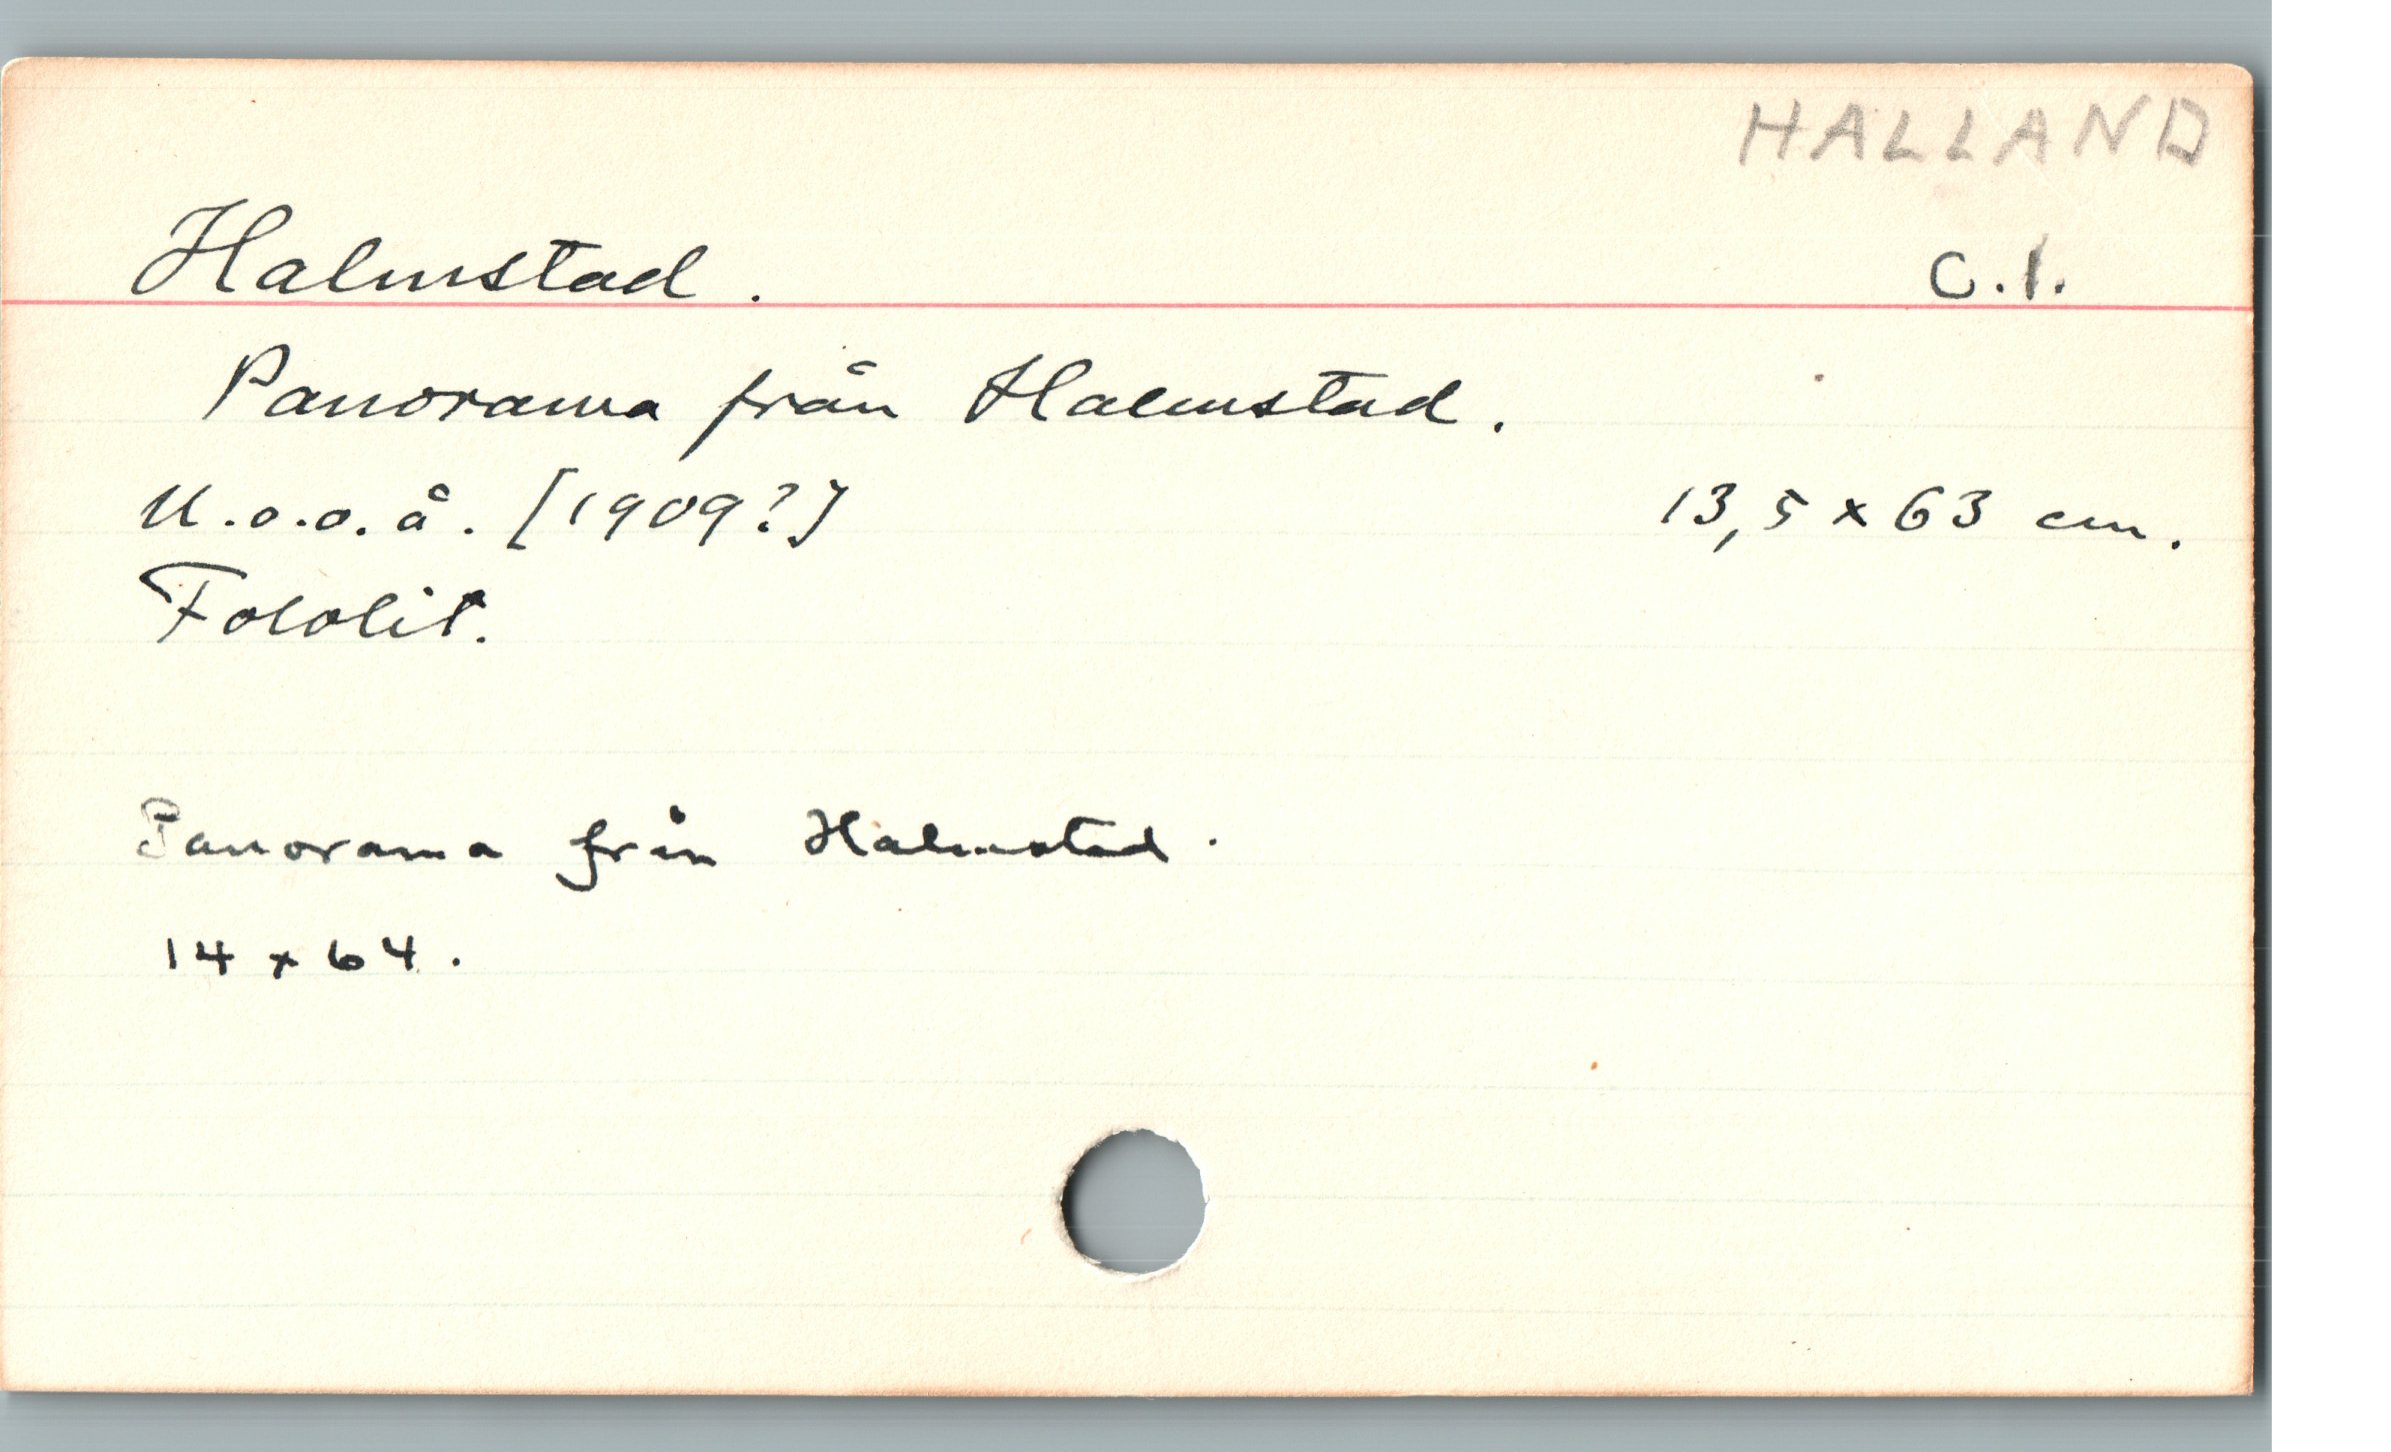 HALLAND
Halmstad. C.1.
Panorama från Halmstad.
U.o.o.å. [1909?] 13,5 x 63 cm.
Fotolit.
Panorama från Halmstad.
14 x 64.